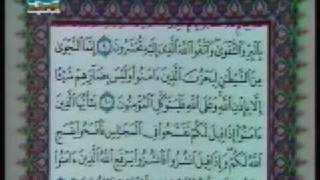 بِٱلْبِرِّ وَٱلتَّقْوَىٰ وَٱتَّقُوا۟ ٱللَّهَ ٱلَّذِىٓ إِلَيْهِ تُحْشَرُونَ ۝٩ إِنَّمَا ٱلنَّجْوَىٰ
مِنَ ٱلشَّيْطَٰنِ لِيَحْزُنَ ٱلَّذِينَ ءَامَنُوا۟ وَلَيْسَ بِضَآرِّهِمْ شَيْـًٔا
إِلَّا بِإِذْنِ ٱللَّهِ وَعَلَى ٱللَّهِ فَلْيَتَوَكَّلِ ٱلْمُؤْمِنُونَ ۝١٠ يَٰٓأَيُّهَا ٱلَّذِينَ
ءَامَنُوٓا۟ إِذَا قِيلَ لَكُمْ تَفَسَّحُوا۟ فِى ٱلْمَجَٰلِسِ فَٱفْسَحُوا۟ يَفْسَحِ
ٱللَّهُ لَكُمْ وَإِذَا قِيلَ ٱنشُزُوا۟ فَٱنشُزُوا۟ يَرْفَعِ ٱللَّهُ ٱلَّذِينَ ءَامَنُوا۟